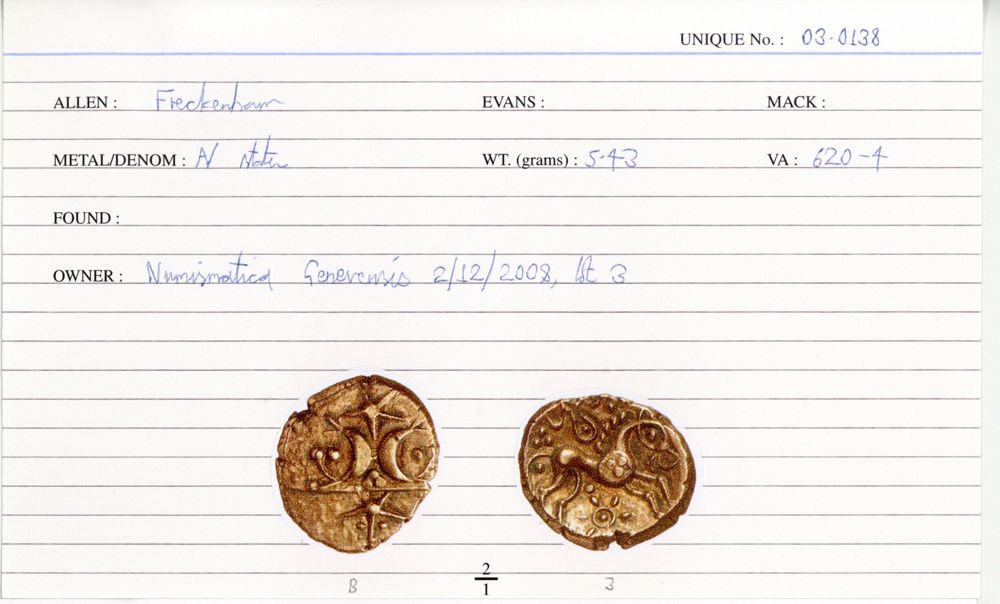 UNIQUE No. : 03-0138
ALLEN : Freckenham EVANS : MACK :
METAL/DENOM : AV stater WT. (grams) : 5.43 VA : 620-4
FOUND :
OWNER : Numismatica Genevensis 2/12/2008, lot 3
2
1
B 3